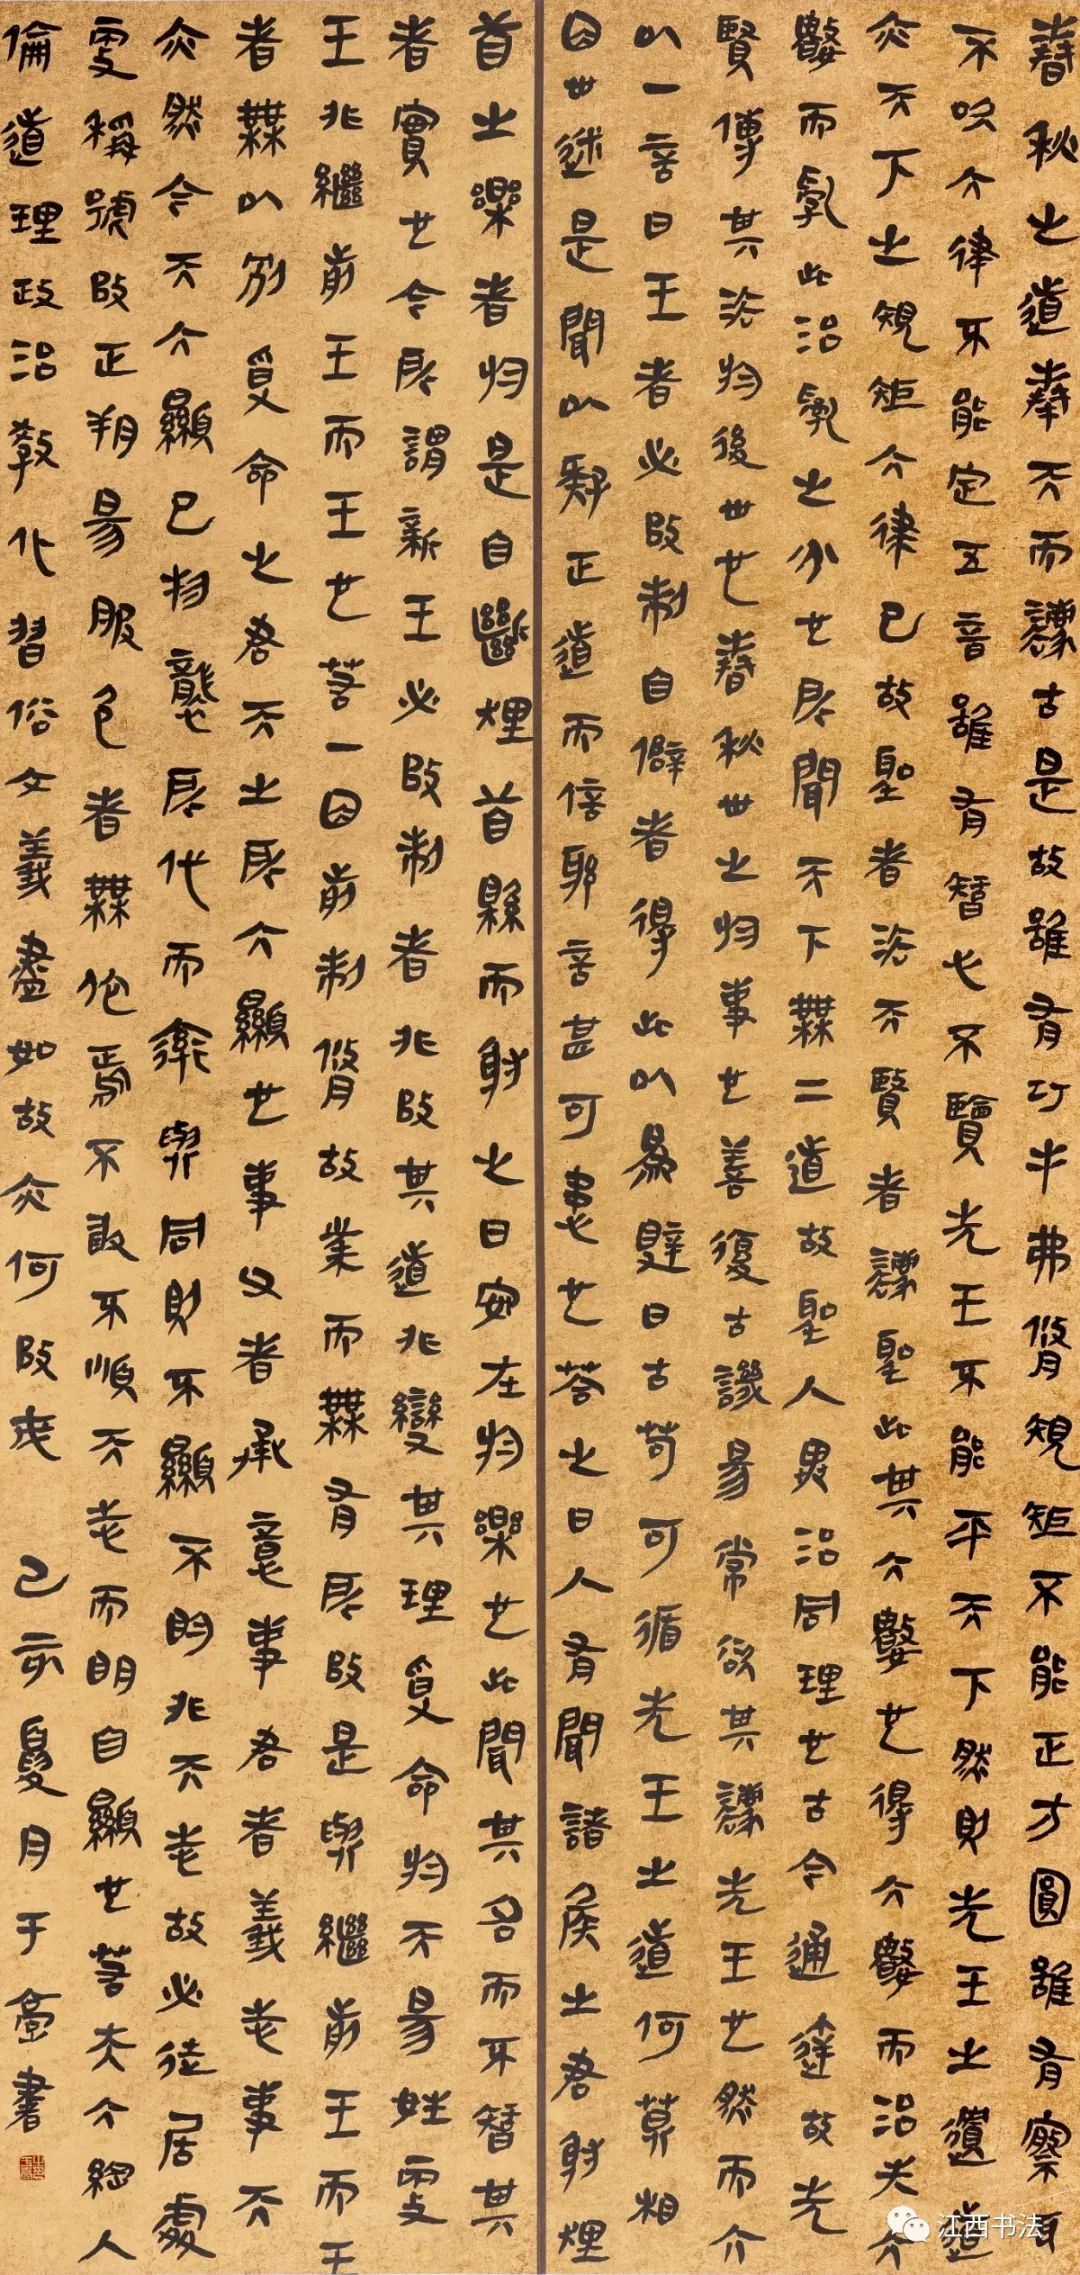 春秋之道奉天而法古是故雖有巧手弗脩規矩不能正方圓雖有察耳
不吹六律不能定五音雖有智心不覽先王不能平天下然則先王之遺道
亦天下之規矩六律已故聖者法天賢者法聖此其大數也得大數而治失大
數而亂此治亂之分也所聞天下無二道故聖人異治同理也古今通達故先
賢傳其法於後世也春秋世之於事也善復古譏易常欲其法先王也然而介
以一言曰王者必改制自僻者得此以為辟曰古苟可循先王之道何莫相
因世迷是聞以疑正道而信邪言甚可患也答之曰人有聞諸侯之君射貍
首之樂者於是自斷貍首縣而射之曰安在於樂也此聞其名而不智其
者實也今所謂新王必改制者非改其道非變其理受命於天易姓更
王非繼前王而王也若一因前制脩故業而無有所改是與繼前王而王
者無以別受命之君天之所大顯也事父者承意事君者義志事天
亦然今天大顯已物襲所代而率與同則不顯不明非天志故必徒居處
更稱號改正朔易服色者無他焉不敢不順天志而明自顯也若夫大綱人
倫道理政治教化習俗文義盡如故亦何改哉 己亥夏月于 書
江西书法